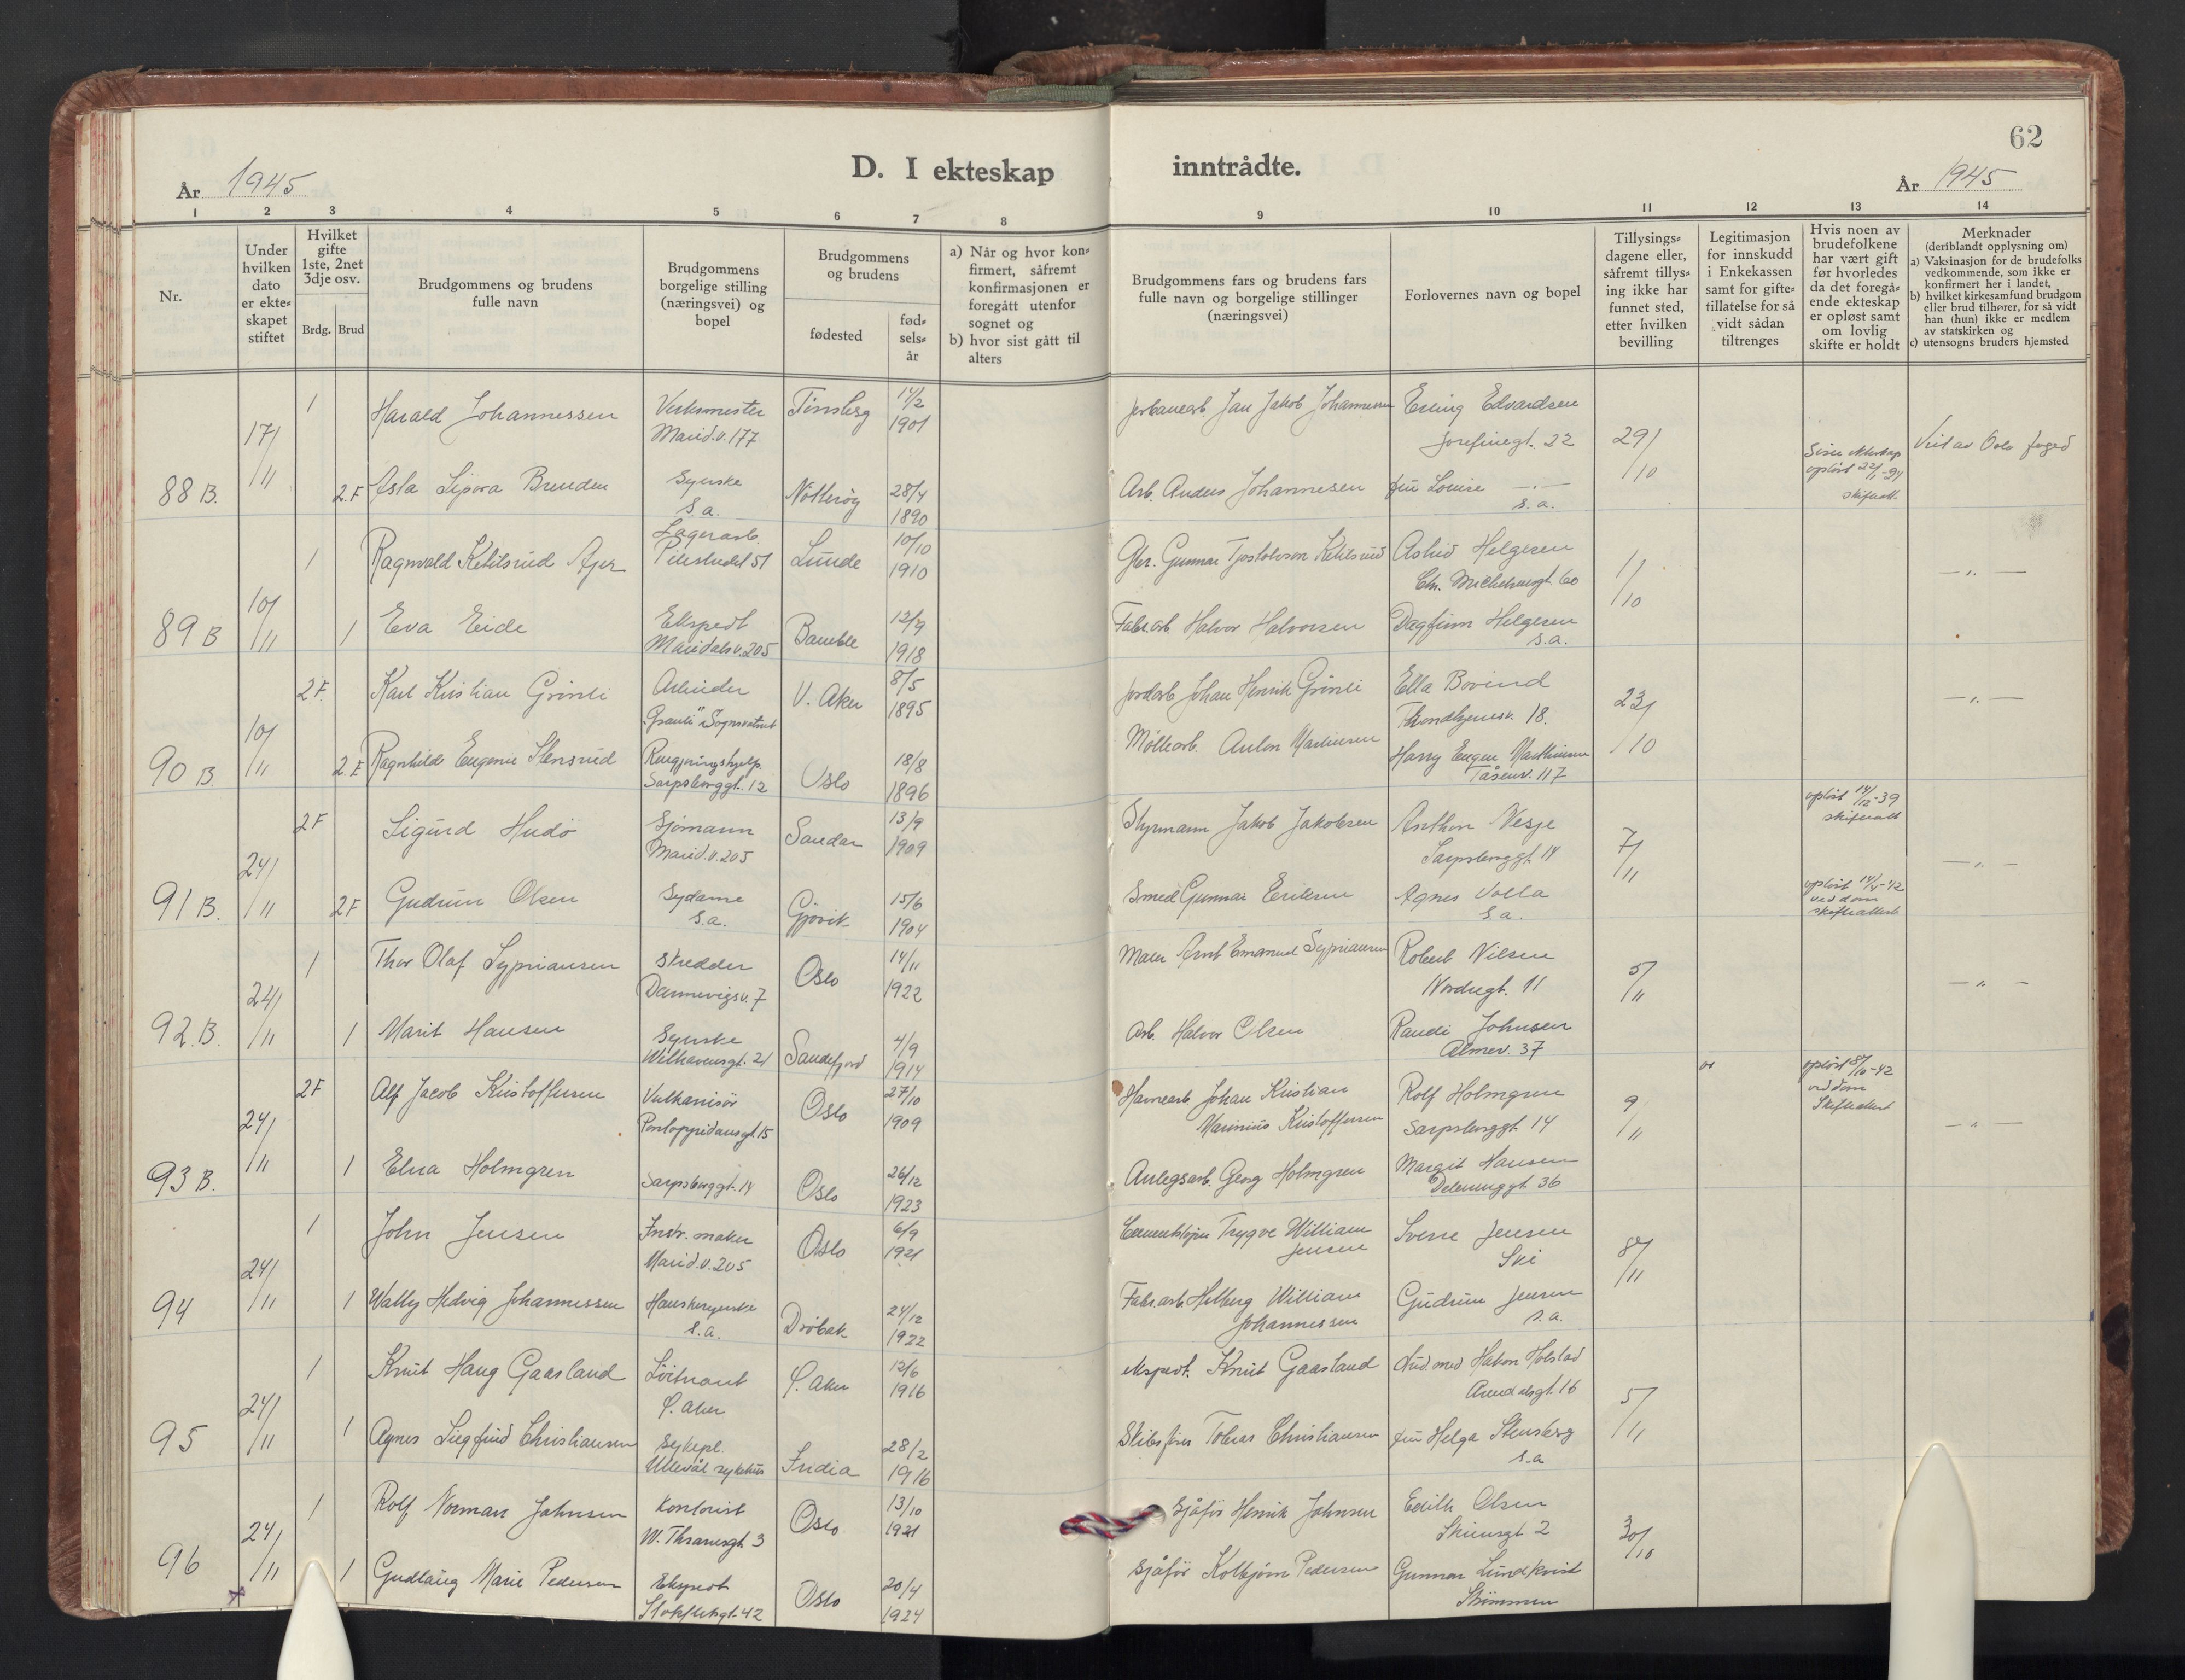 62
D. I ekteskap inntrådte.
År 1945
År 1945
1 2 3 4 5 6 7 8 9 10 11 12 13 14
Nr.
Under hvilken dato er ekteskapet stiftet
Hvilket gifte 1ste, 2net 3dje osv.
Brdg. Brud
Brudgommens og brudens fulle navn
Brudgommens borgelige stilling (næringsvei) og bopel
Brudgommens og brudens
fødested
fødselsår
a) Når og hvor konfirmert, såfremt konfirmasjonen er foregått utenfor sognet og
b) hvor sist gått til alters
Brudgommens fars og brudens fars fulle navn og borgelige stillinger (næringsvei)
Forlovernes navn og bopel
Tillysingsdagene eller, såfremt tillysing ikke har funnet sted, etter hvilken bevilling
Legitimasjon for innskudd i Enkekassen samt for giftetillatelse for så vidt sådan tiltrenges
Hvis noen av brudefolkene har vært gift før hvorledes da det foregående ekteskap er opløst samt om lovlig skifte er holdt
Merknader
(deriblandt opplysning om)
a) Vaksinasjon for de brudefolks vedkommende, som ikke er konfirmert her i landet,
b) hvilket kirkesamfund brudgom eller brud tilhører, for så vidt han (hun) ikke er medlem av statskirken og
c) utensogns bruders hjemsted
88 B. 17/11
1 Harald Johannessen Verksmester Marid.v. 177 Tønsberg 14/2 1901 Jan Jakob Johannessen Erling Edvardsen Josefinegt. 22 29/10 Viet av Oslo foged
2.F Asla Brenden Syerske s.a. Nøtterøy 28/4 1890 Arb. Anders Johannesen fru Louise —"— s.a. skifteatt.
89 B 10/11
1 Ragnvald Ketilsrud Lagerarb. Pilestredet 51 Lunde 10/10 1910 Gbr. Gunnar Ketilsrud Astrid Helgesen Chr. Michelsensgt. 60 1/10 —"—
1 Eva Eide Ekspedt Maridalsv. 205 Bamble 12/9 1918 Fabrarb. Halvor Halvorsen Dagfinn Helgesen s.a.
90 B. 10/11
2 F. Karl Kristian Grønli Arbeider V. Aker 8/5 1895 Jordarb. Johan Henrik Grønli Ella Bovind Trondhjemsv. 18. 23/10 —"—
2.F Ragnhilde Eugenie Stensrud Rengjøringshjelp Sarpsborggt. 12 Oslo 18/8 1896 Møllearb. Anton Martinsen Harry Eugen Marthinsen Tåsenv. 117
91 B. 24/11
2F Sigurd Hudø Sjømann Marid.v. 205 Sandar 13/9 1909 Styrmann Jakob Jakobsen Anthon Vesje Sarpsborggt. 14 7/11 opløst 14/12-39 skifteatt —"—
2F Gudrun Olsen Sydame s.a. Gjøvik 15/6 1904 Smed Gunnar Eriksen Agnes Volla s.a. ved dom skifteattest
92.B. 24/11
1 Thor Olaf Sypriansen Skredder Dannevigsv. 7 Oslo 14/11 1922 Maler Arnt Emanuel Sypriansen Robert Nilsen Nordregt. 11 5/11 —"—
1 Marit Hansen Syerske Welhavensgt. 21 Sandefjord 4/9 1914 Arb. Halvor Olsen Randi Johnsen Almev. 37
93 B. 24/11
2F Alf Jacob Kristoffersen Vulkanisør Pontoppidansgt 15 Oslo 27/10 1909 Havnearb Johan Kristian Marinius Kristoffersen Rolf Holmgren Sarpsborggt. 14 9/11 ved dom Skifteattest —"—
1 Elna Holmgren Sarpsborggt. 14 Oslo 26/12 1923 Anlegsarb. Georg Holmgren Margit Hansen Deleninggt. 36
94 24/11
1 John Jensen Instr. maker Marid.v. 205 Oslo 6/9 1921 Trygve William Jensen Sverre Jensen Ski 8/11
1 Wally Hedvig Johannessen Hanskesyerske s.a. Drøbak 24/12 1922 Fabr.arb. Hilberg William Johannessen Gudrun Jensen s.a.
95 24/11
1 Knut Haug Gaasland Løitnant Ø. Aker Ø. Aker 12/6 1916 ekspedt. Knut Gaasland stud. med Håkon Holstad Arendalsgt. 16 5/11
1 Agnes Siegfrid Christiansen Sykepl. Ullevål sykehus India 28/2 1916 Skibsfører Tobias Christiansen fru Helga Stensberg s.a
96 24/11
1 Rolf Norman Johnsen Kontorist M. Thranesgt. 3 Oslo 13/10 1921 Sjåfør Henrik Johnsen Edith Olsen Skiensgt 2 30/10
1 Gudlaug Marie Pedersen Ekspedt Stokfletsgt. 42 Oslo 20/4 1924 Sjåfør Kolbjørn Pedersen Gunnar Lundkvist Strømmen